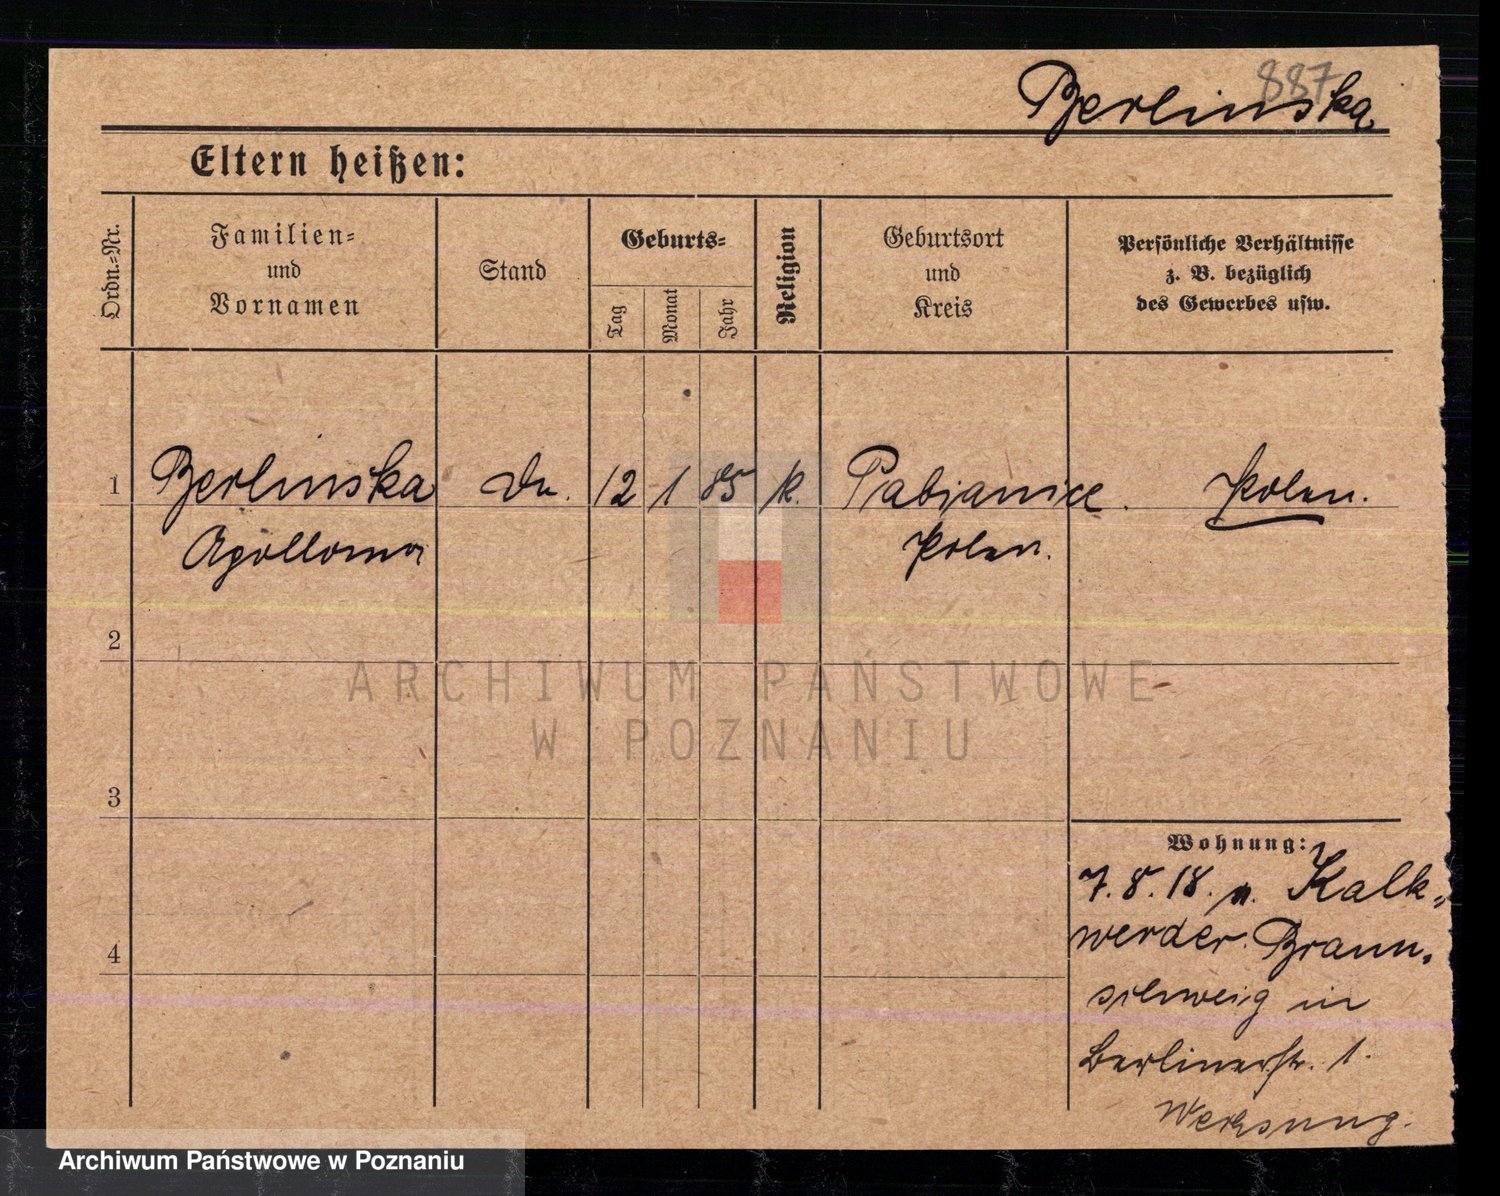 887
Berlinska
Eltern heißen:
Ordn.=Nr.
Familien=
und
Vornamen
Stand
Geburts=
Tag
Monat
Jahr
Religion
Geburtsort
und
Kreis
Persönliche Verhältnisse
z. B. bezüglich
des Gewerbes usw.
1 Berlinska 12 1 85 k. Pabianice. Polen.
Apollonia Polen.
2
ARCHIWUM PAŃSTWOWE
W POZNANIU
3
Wohnung:
7.8.18. n. Kalk=
werder. Braun=
schweig in
4
Berlinerstr. 1.
Archiwum Państwowe w Poznaniu